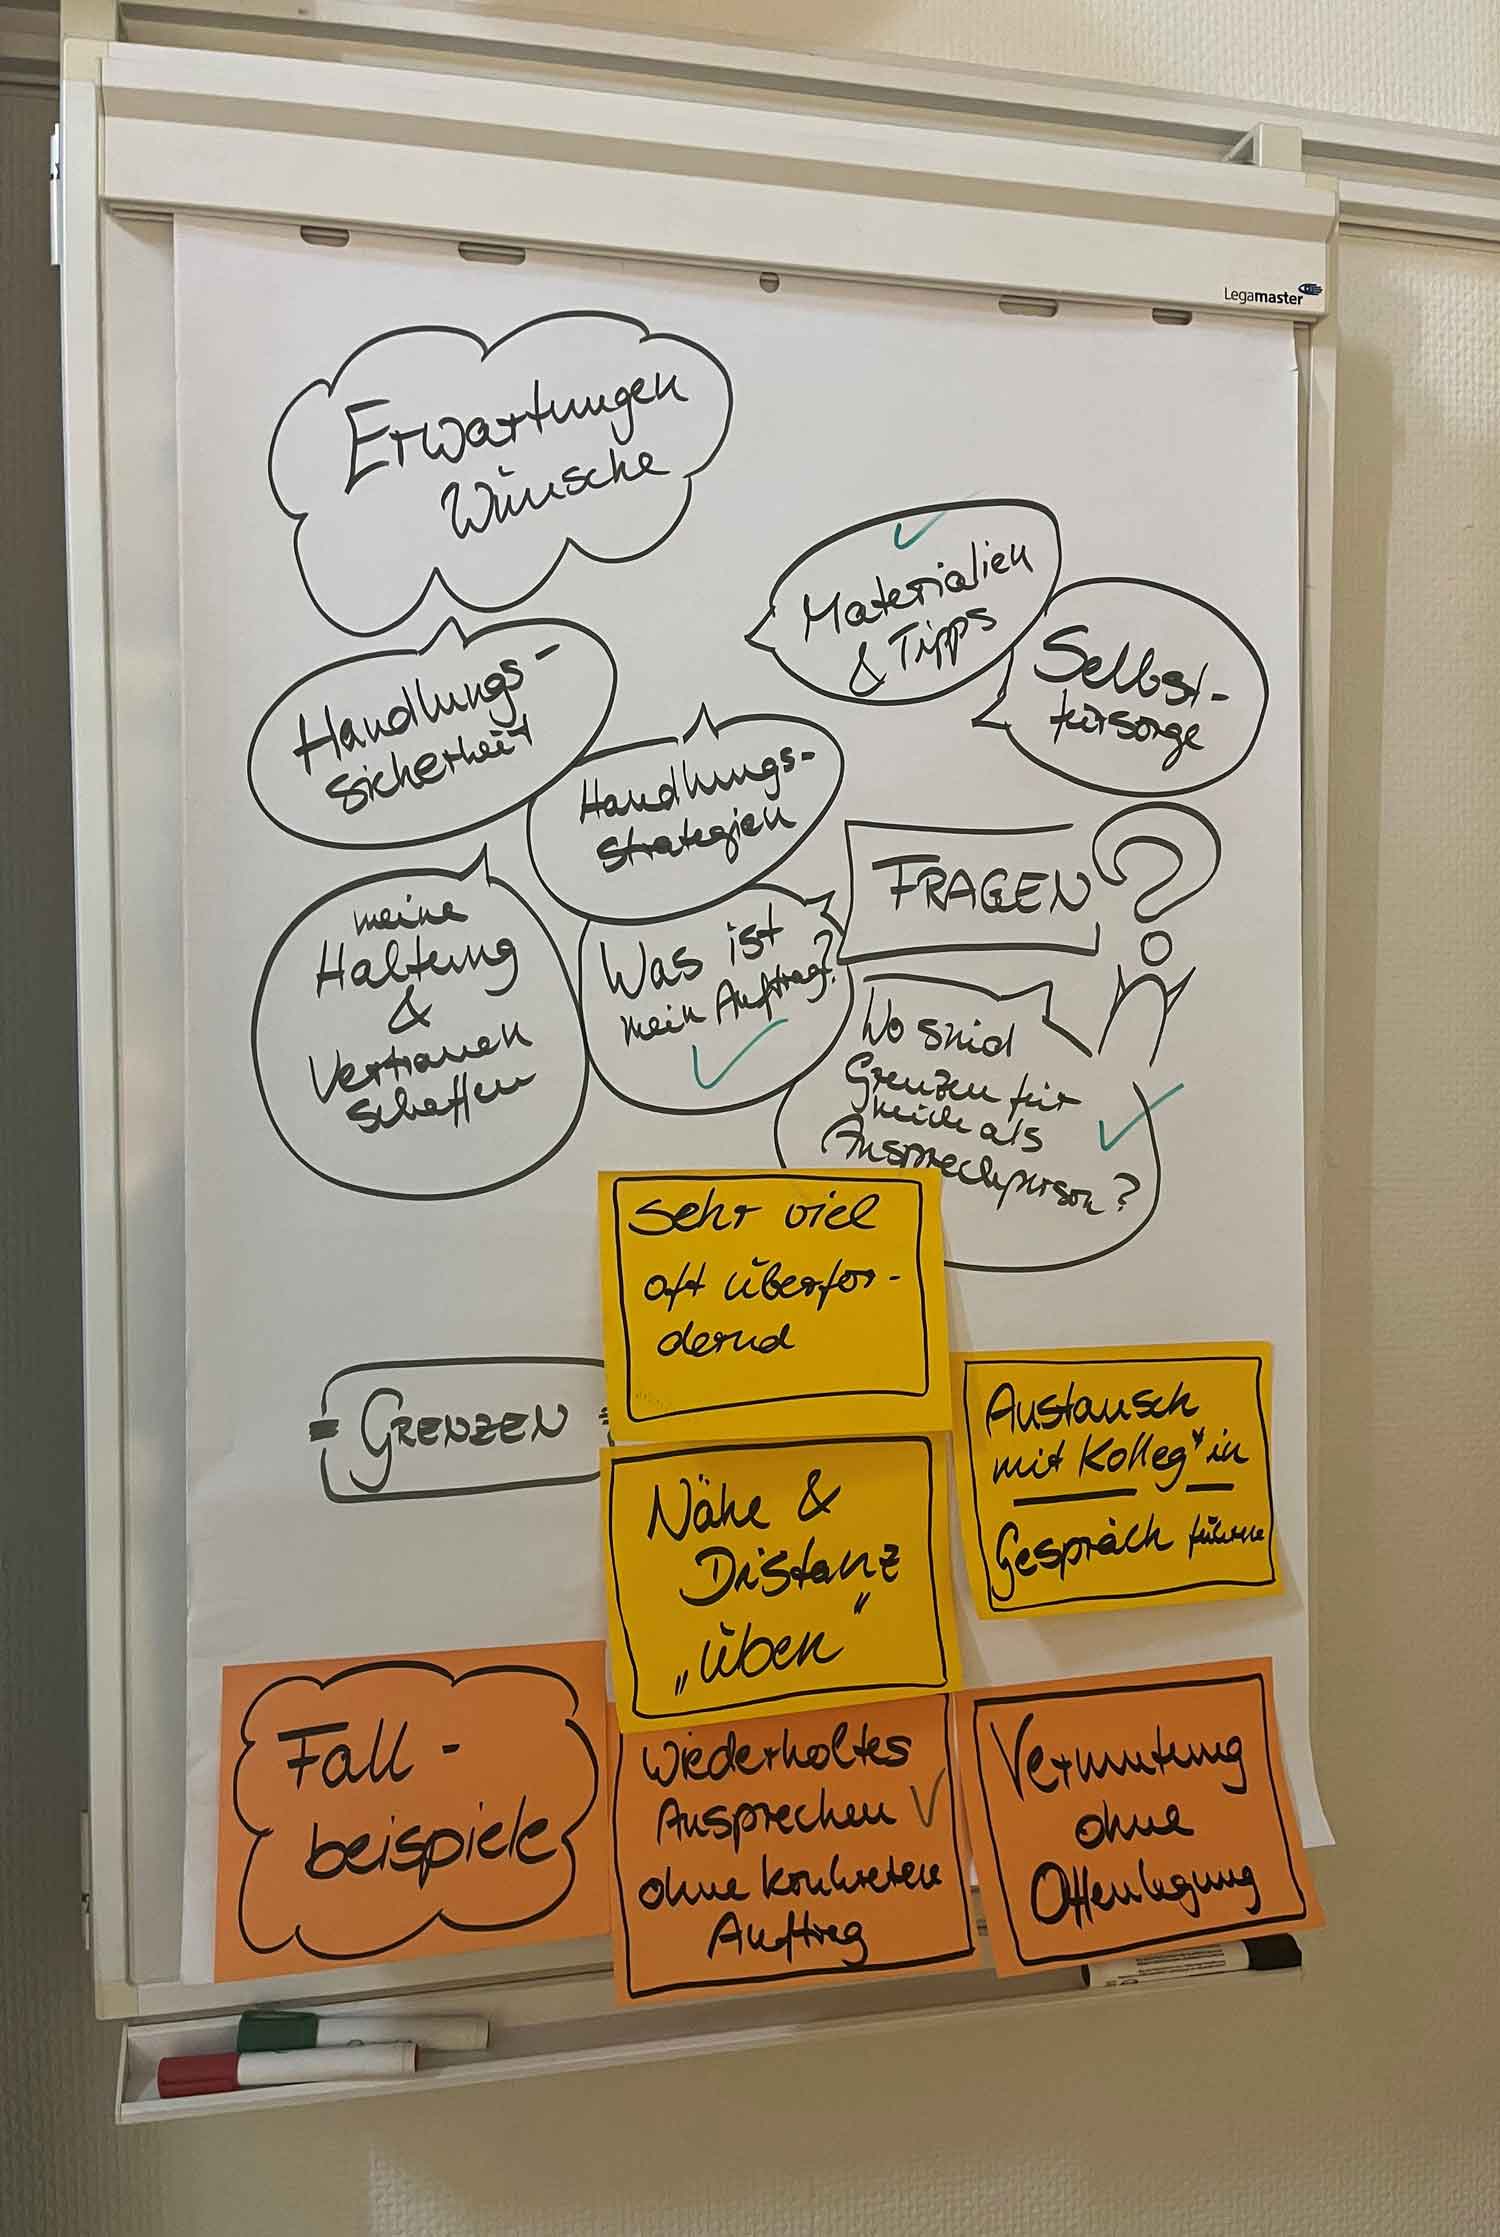 Legamaster
Erwartungen
Wünsche
Materialien
& Tipps
Selbst-
fürsorge
Handlungs-
sicherheit
Handlungs-
strategien
FRAGEN ?
meine
Haltung
&
Vertrauen
schaffen
Was ist
mein Auftrag?
Wo sind
Grenzen für
mich als
Ansprechperson?
Sehr viel
oft überfor-
dernd
- GRENZEN
Austausch
mit Kolleg*in
Gespräch führen
Nähe &
Distanz
„üben"
Fall-
beispiele
Wiederholtes
Ansprechen
ohne konkreten
Auftrag
Vermutung
ohne
Offenlegung